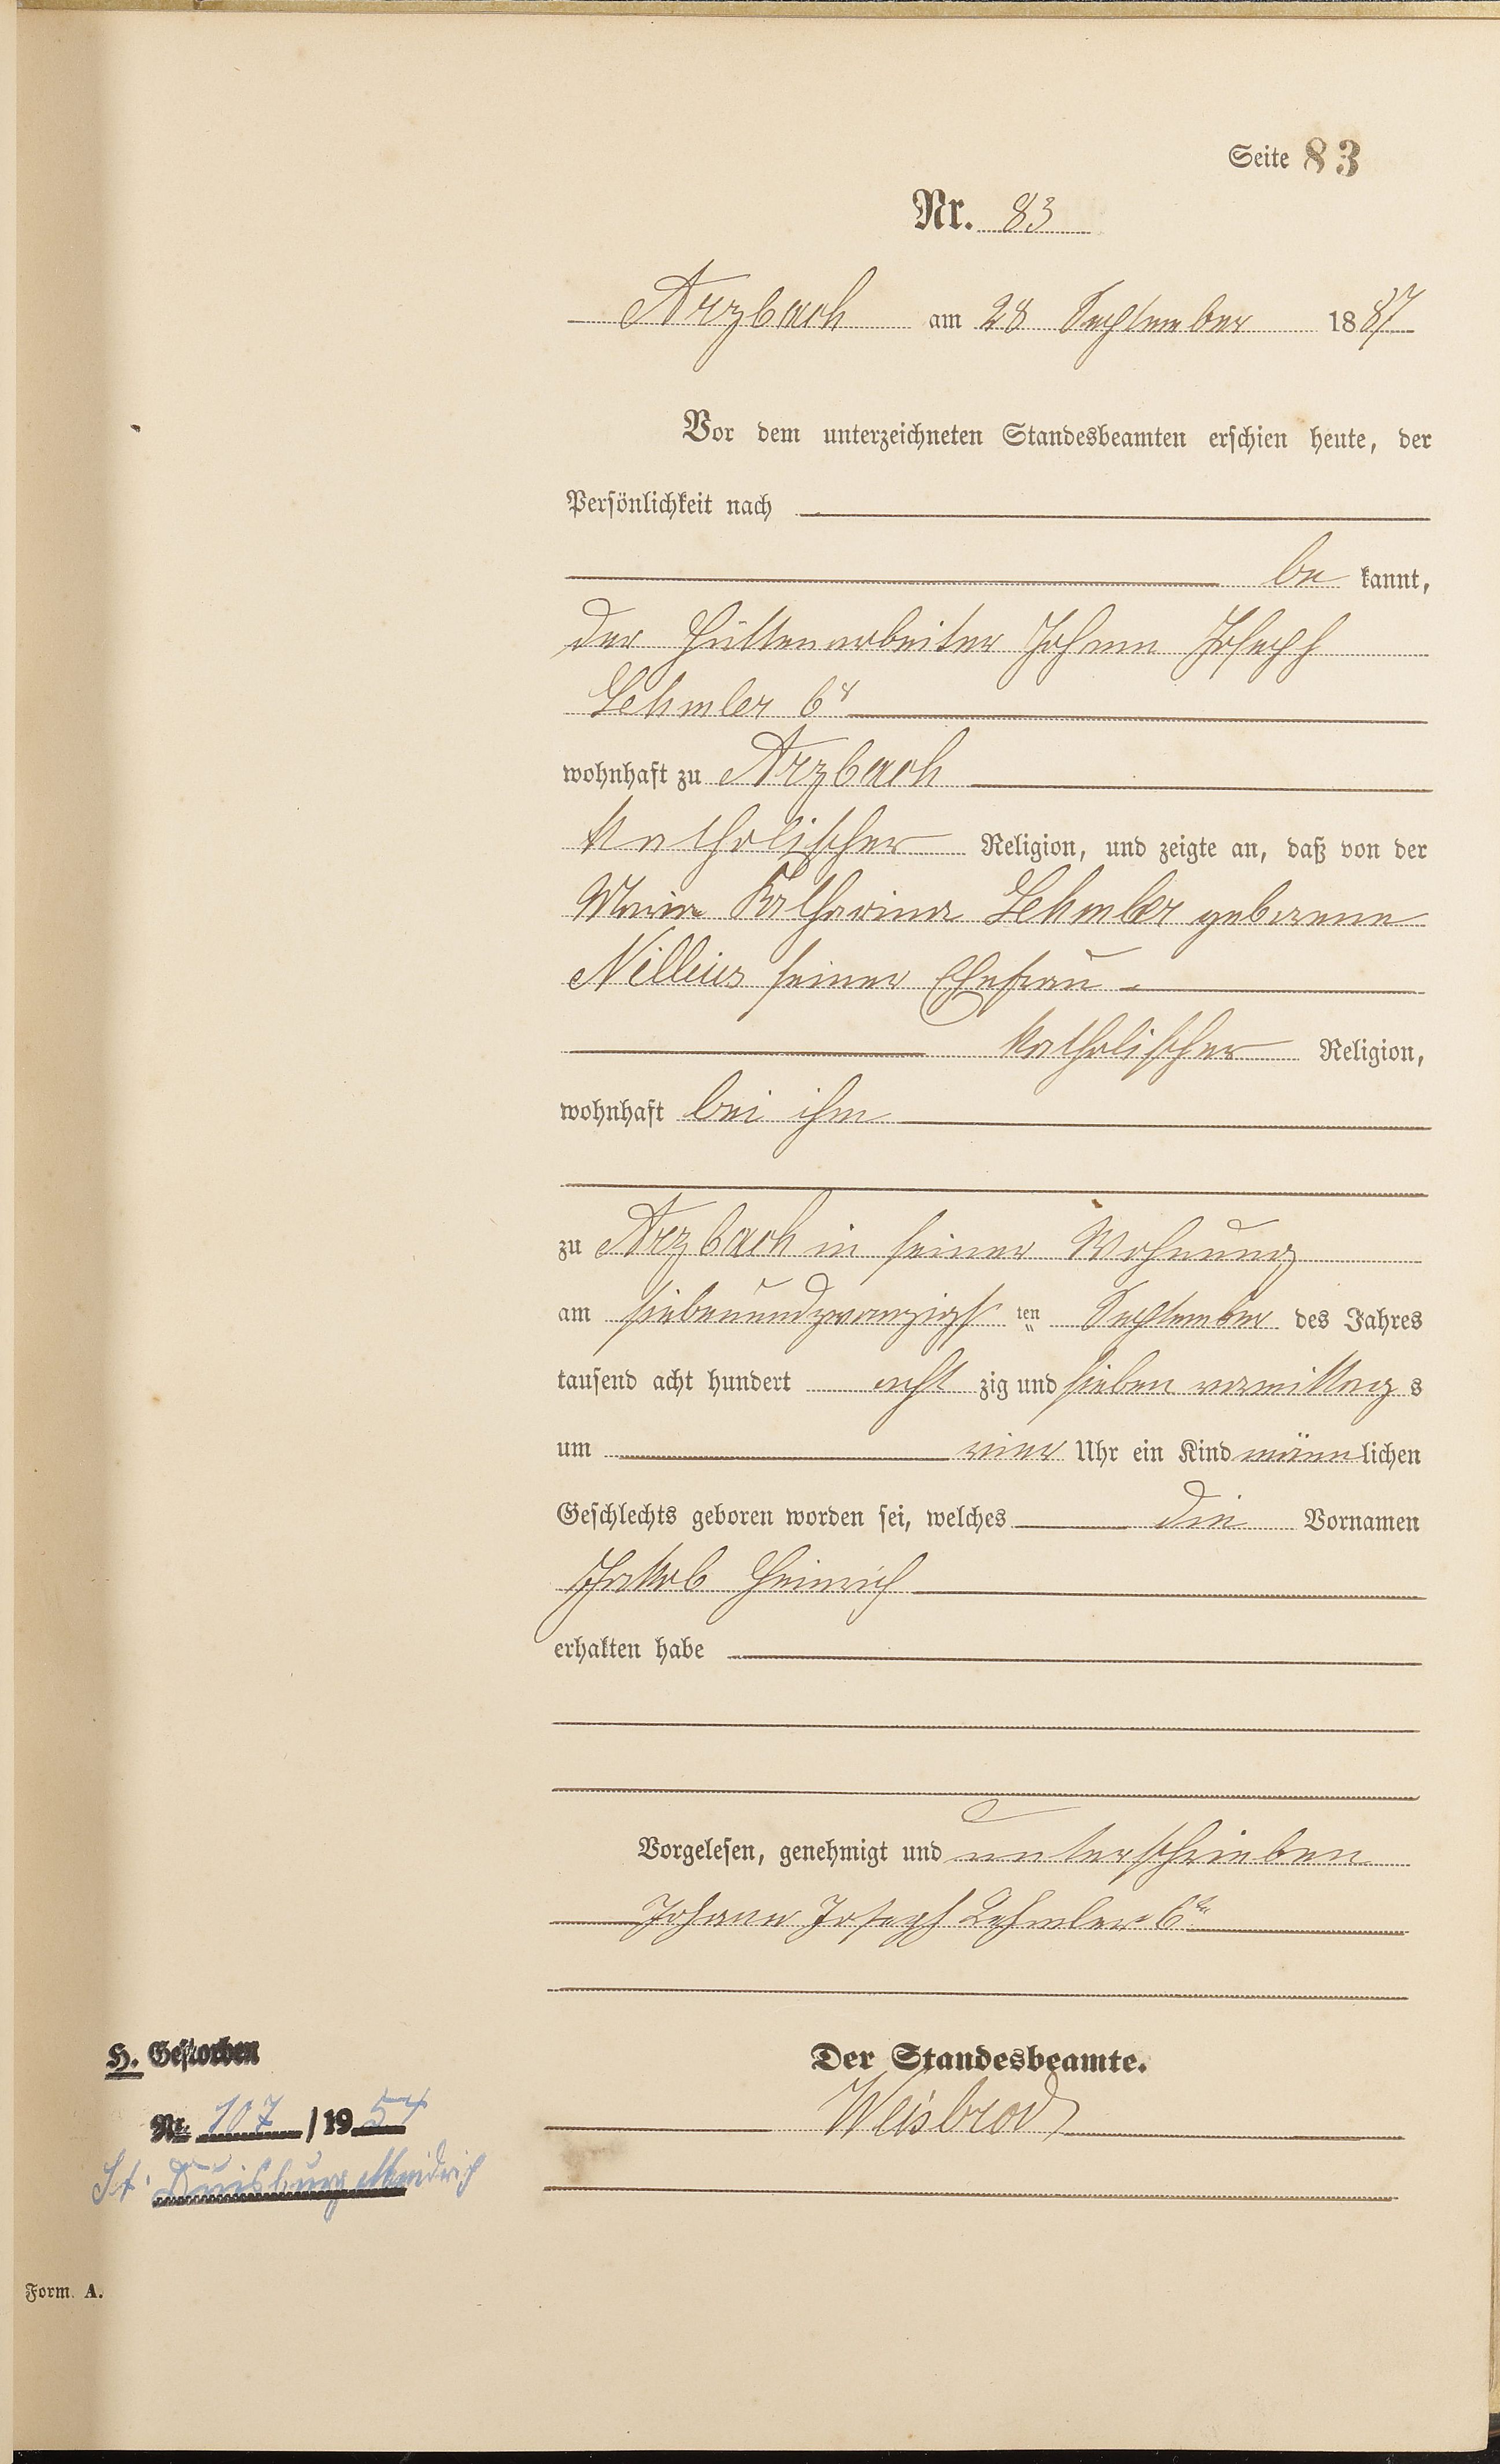 Seite 83
Nr. 83
Arzbach am 28 September 1887
Vor dem unterzeichneten Standesbeamten erschien heute, der
Persönlichkeit nach
be kannt,
der Hüttenarbeiter Johann Joseph
Lehmler 6r
wohnhaft zu Arzbach
katholischer Religion, und zeigte an, daß von der
Maria Katharina Lehmler geborene
Nilleus seiner Ehefrau
katholischer Religion,
wohnhaft bei ihm
zu Arzbach in seiner Wohnung
am siebenundzwanzigst ten September des Jahres
tausend acht hundert acht zig und sieben vormittag s
um vier Uhr ein Kind männlichen
Geschlechts geboren worden sei, welches die Vornamen
Jakob Heinrich
erhalten habe
Vorgelesen, genehmigt und unterschrieben
Johann Joseph Lehmler 6te
H. Gestorben
Der Standesbeamte.
Nr. 107 / 1954
Weisbrod
St. Duisburg Meidrich
Form. A.